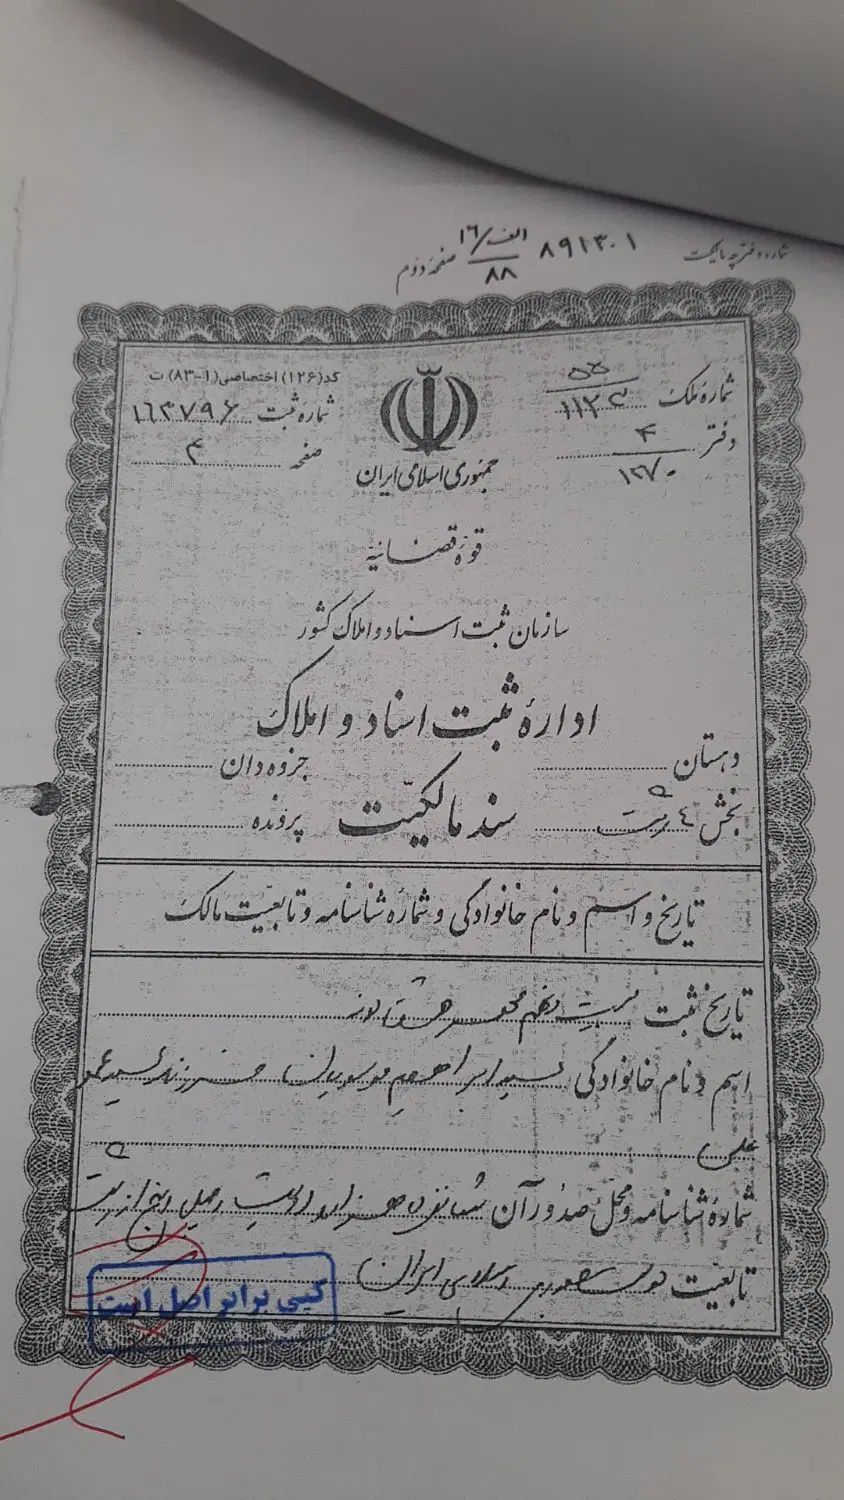 شماره دفترچه مالکیت ۸۹۱۳۰۱ الف/۱۶ ۸۸ صفحه دوم
شماره ملک ۵۵ ۱۱۲۲
کد(۱۲۶) اختصاصی(۱-۸۳) ت
شماره ثبت ۱۶۳۷۹۶
دفتر ۴ ۱۲۷۰
صفحه ۴
جمهوری اسلامی ایران
قوه قضائیه
سازمان ثبت اسناد و املاک کشور
اداره ثبت اسناد و املاک
دهستان
جزوه دان
بخش ۴ رشت
سند مالکیت
پرونده
تاریخ و اسم و نام خانوادگی و شماره شناسنامه و تابعیت مالک
تاریخ ثبت بیست و نهم
اسم و نام خانوادگی سید ابراهیم موسویان فرزند سید
علی
شماره شناسنامه و محل صدور آن شانزده هزار و دویست و چهل و پنج از رشت
تابعیت دولت جمهوری اسلامی ایران
کپی برابر اصل است